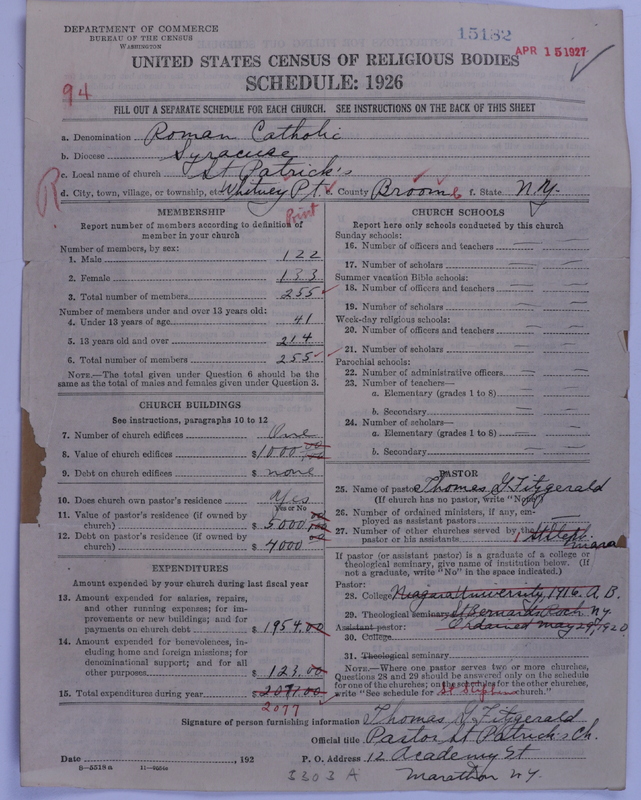 DEPARTMENT OF COMMERCE
BUREAU OF THE CENSUS
WASHINGTON
15182
APR 15 1927
UNITED STATES CENSUS OF RELIGIOUS BODIES
SCHEDULE: 1926
94
FILL OUT A SEPARATE SCHEDULE FOR EACH CHURCH. SEE INSTRUCTIONS ON THE BACK OF THIS SHEET
a. Denomination Roman Catholic
b. Diocese Syracuse
c. Local name of church St Patrick's
R
d. City, town, village, or township, etc. Whitney Pt e. County Broome f. State N.Y.
Print
MEMBERSHIP
Report number of members according to definition of
member in your church
Number of members, by sex:
1. Male 122
2. Female 133
3. Total number of members 255
Number of members under and over 13 years old:
4. Under 13 years of age 41
5. 13 years old and over 214
6. Total number of members 255
NOTE.—The total given under Question 6 should be the
same as the total of males and females given under Question 3.
CHURCH BUILDINGS
See instructions, paragraphs 10 to 12
7. Number of church edifices One
8. Value of church edifices $ 10000 00
9. Debt on church edifices $ none
10. Does church own pastor's residence Yes
Yes or No
11. Value of pastor's residence (if owned by
church) $ 5000 00
12. Debt on pastor's residence (if owned by
church) $ 4000 00
EXPENDITURES
Amount expended by your church during last fiscal year
13. For salaries, repairs,
and other running expenses; for im-
provements or new buildings; and for
payments on church debt $ 1954.00
14. Amount expended for benevolences, in-
cluding home and foreign missions; for
denominational support; and for all
other purposes $ 123.00
15. Total expenditures during year $ 2071.00
2077
CHURCH SCHOOLS
Report here only schools conducted by this church
Sunday schools:
16. Number of officers and teachers — —
17. Number of scholars — —
Summer vacation Bible schools:
18. Number of officers and teachers — —
19. Number of scholars — —
Week-day religious schools:
20. Number of officers and teachers — —
21. Number of scholars — —
Parochial schools:
22. Number of administrative officers — —
23. Number of teachers—
a. Elementary (grades 1 to 8) — —
b. Secondary — —
24. Number of scholars—
a. Elementary (grades 1 to 8) — —
b. Secondary — —
PASTOR
25. Name of pastor Thomas J Fitzgerald
(If church has no pastor, write "None")
26. Number of ordained ministers, if any, em-
ployed as assistant pastors —
27. Number of other churches served by the
pastor or his assistants 1
If pastor (or assistant pastor) is a graduate of a college or
theological seminary, give name of institution below. (If
not a graduate, write "No" in the space indicated.)
Pastor:
28. College Niagara University, 1916. A. B.
29. Theological seminary St Bernards Roch. N.Y.
Assistant pastor: Ordained May 29, 1920
30. College
31. Theological seminary
NOTE.—Where one pastor serves two or more churches,
Questions 28 and 29 should be answered only on the schedule
for one of the churches; on the schedules for the other churches,
write "See schedule for St Stephens church."
Signature of person furnishing information Thomas J Fitzgerald
Official title Pastor St Patrick's Ch.
Date , 192 P. O. Address 12 Academy St
8—5518a 11—9554a
Marathon N.Y.
1303 A